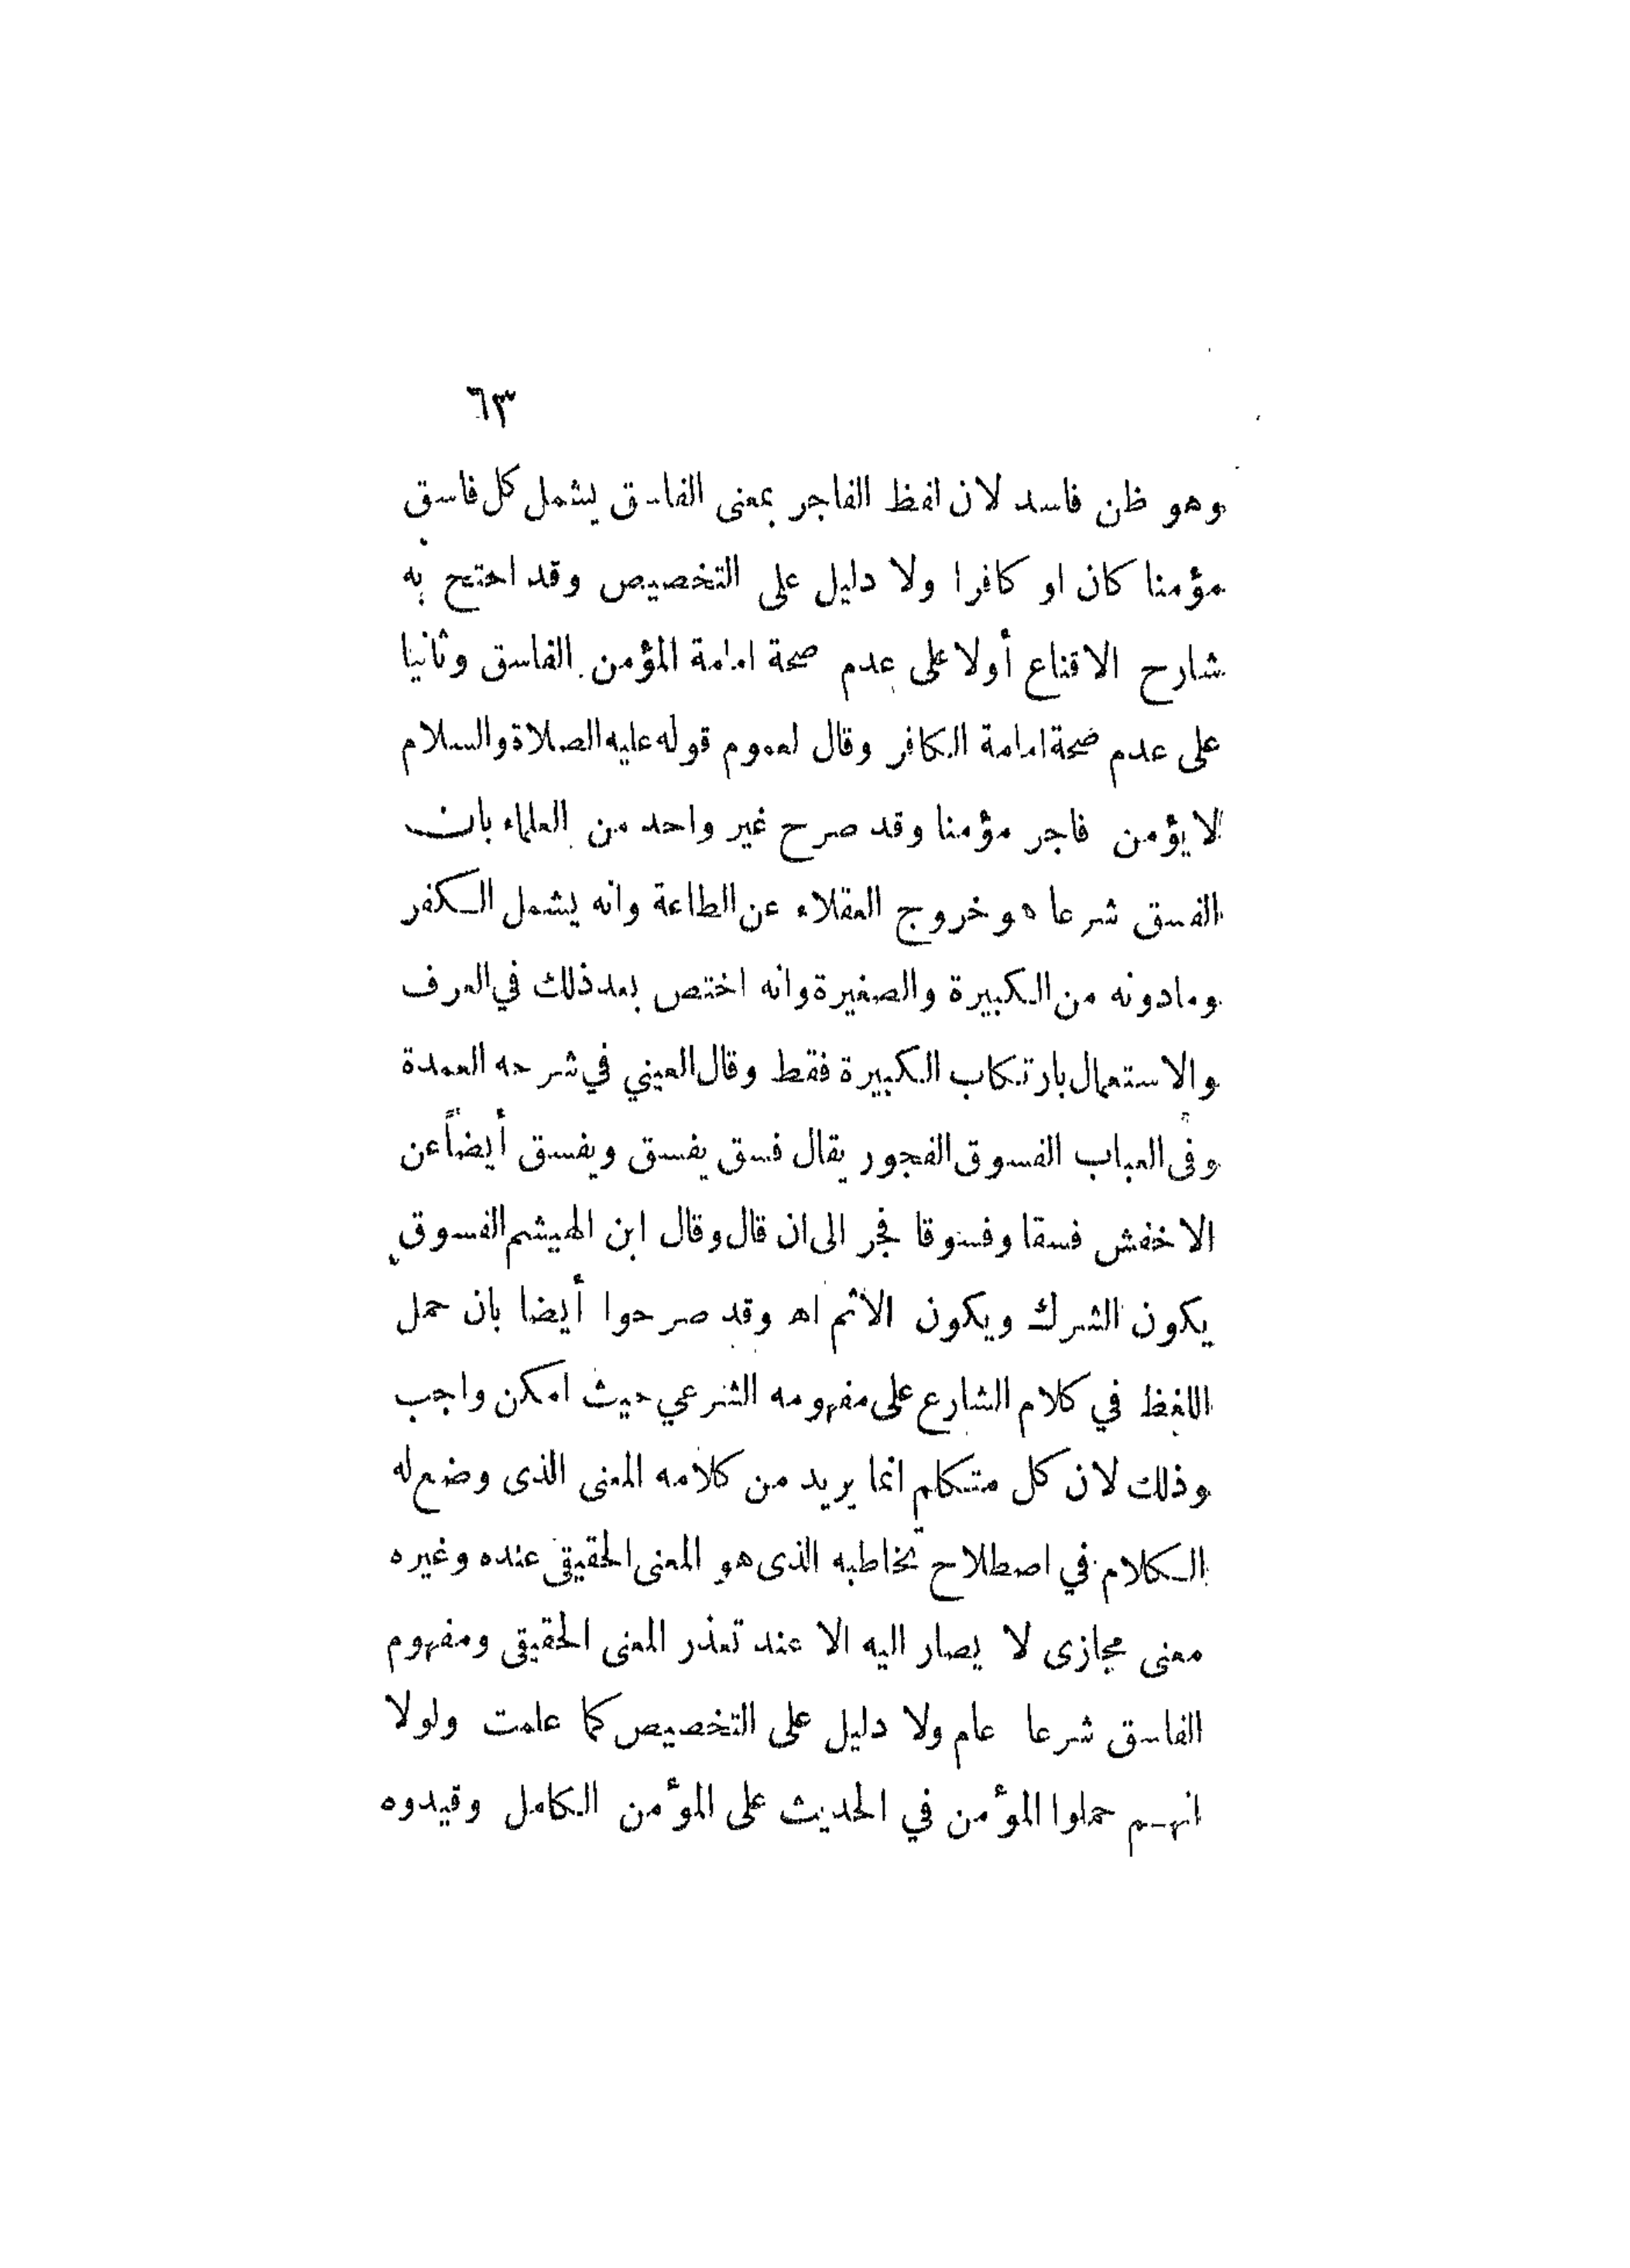 ٦٣
وهو ظن فاسد لان لفظ الفاجر بمعنى الفاسق يشمل كل فاسق
مؤمنا كان او كافرا ولا دليل على التخصيص وقد احتج به
شارح الاقناع أولا على عدم صحة امامة المؤمن الفاسق وثانيا
على عدم صحة امامة الكافر وقال لعموم قوله عليه الصلاة والسلام
لا يؤمن فاجر مؤمنا وقد صرح غير واحد من العلماء بان
الفسق شرعا هو خروج العقلاء عن الطاعة وانه يشمل الكفر
ومادونه من الكبيرة والصغيرة وانه اختص بعد ذلك في العرف
والاستعمال بارتكاب الكبيرة فقط وقال العيني في شرحه العمدة
وفى العباب الفسوق الفجور يقال فسق يفسق ويفسق أيضاً عن
الاخفش فسقا وفسوقا فجر الى ان قال وقال ابن الهيشم الفسوق
يكون الشرك ويكون الاثم اه وقد صرحوا أيضا بان حمل
اللفظ في كلام الشارع على مفهومه الشرعي حيث امكن واجب
وذلك لان كل متكلم انما يريد من كلامه المعنى الذى وضع له
الكلام في اصطلاح تخاطبه الذى هو المعنى الحقيقى عنده وغيره
معنى مجازى لا يصار اليه الا عند تعذر المعنى الحقيقى ومفهوم
الفاسق شرعا عام ولا دليل على التخصيص كما علمت ولولا
انهم حملوا المؤمن في الحديث على المؤمن الكامل وقيدوه